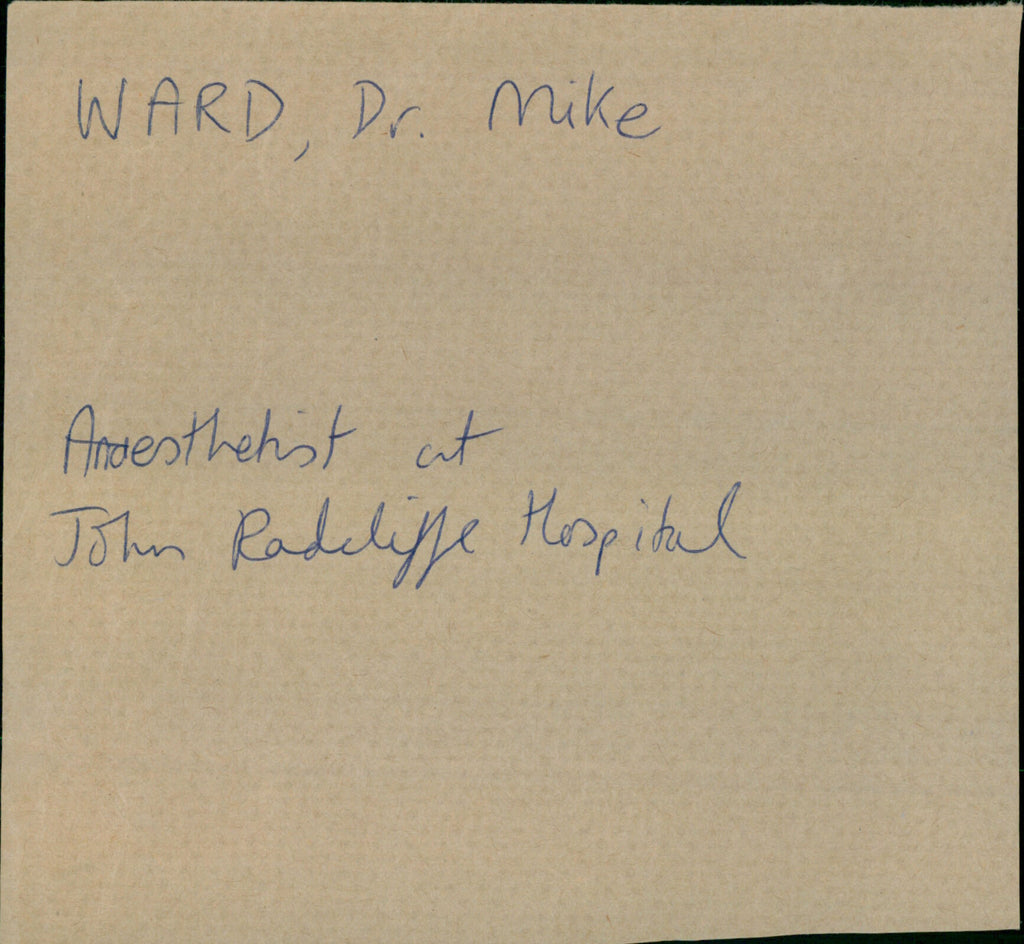 WARD, Dr. Mike
Anaesthetist at
John Radcliffe Hospital